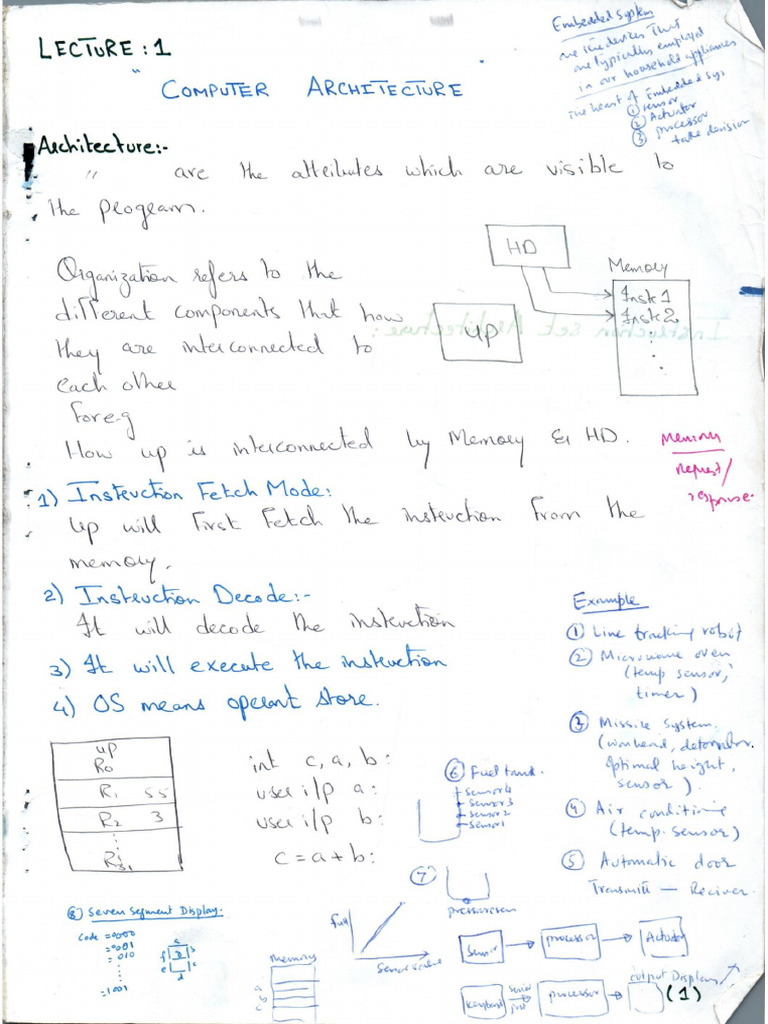 LECTURE : 1
" COMPUTER ARCHITECTURE "
Embedded System
are the devices that
are typically employed
in our household appliances
The heart of Embedded Sys
① sensor
② Actuator
③ processor
take decision
Architecture:-
" are the attributes which are visible to
the program.
Organization refers to the
different components that how
they are interconnected to
each other
for e.g
How up is interconnected by Memory & HD.
HD
Memory
Inst 1
Inst 2
up
Instruction set Architecture:
Memory
request/
response.
1) Instruction Fetch Mode:
Up will first fetch the instruction from the
memory.
2) Instruction Decode:-
It will decode the instruction
3) It will execute the instruction
4) OS means operant store.
up
R0
R1 55
R2 3
R31
int c, a, b:
user i/p a:
user i/p b:
c = a + b:
Example
① Line tracking robot
② Microwave oven
(temp sensor,
timer)
③ Missile System.
(warhead, detonator.
Optimal height,
sensor).
④ Air conditioning
(temp. sensor)
⑤ Automatic door
Transmitt — Reciver.
⑥ Fuel tank.
sensor 4
sensor 3
sensor 2
sensor 1
⑦
⑧ Seven Segment Display.
Code = 0000
= 0001
= 010
= 1001
a
f b
e c
d
memory
a
b
c
full
Sensor
processor
Actuator
keyboard
serial
port
processor
output Display
(1)